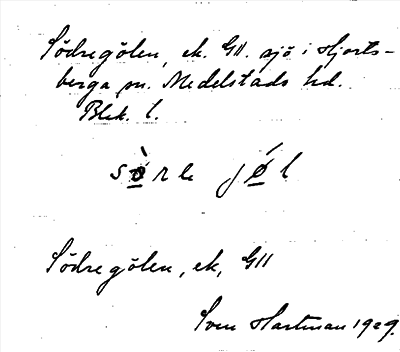 Södregölen, ek. G11. sjö i Hjorts-
berga sn. Medelstads hd.
Blek. l.
sø̀rle jǿl
Södregölen, ek, G11
Sven Hartman 1929.